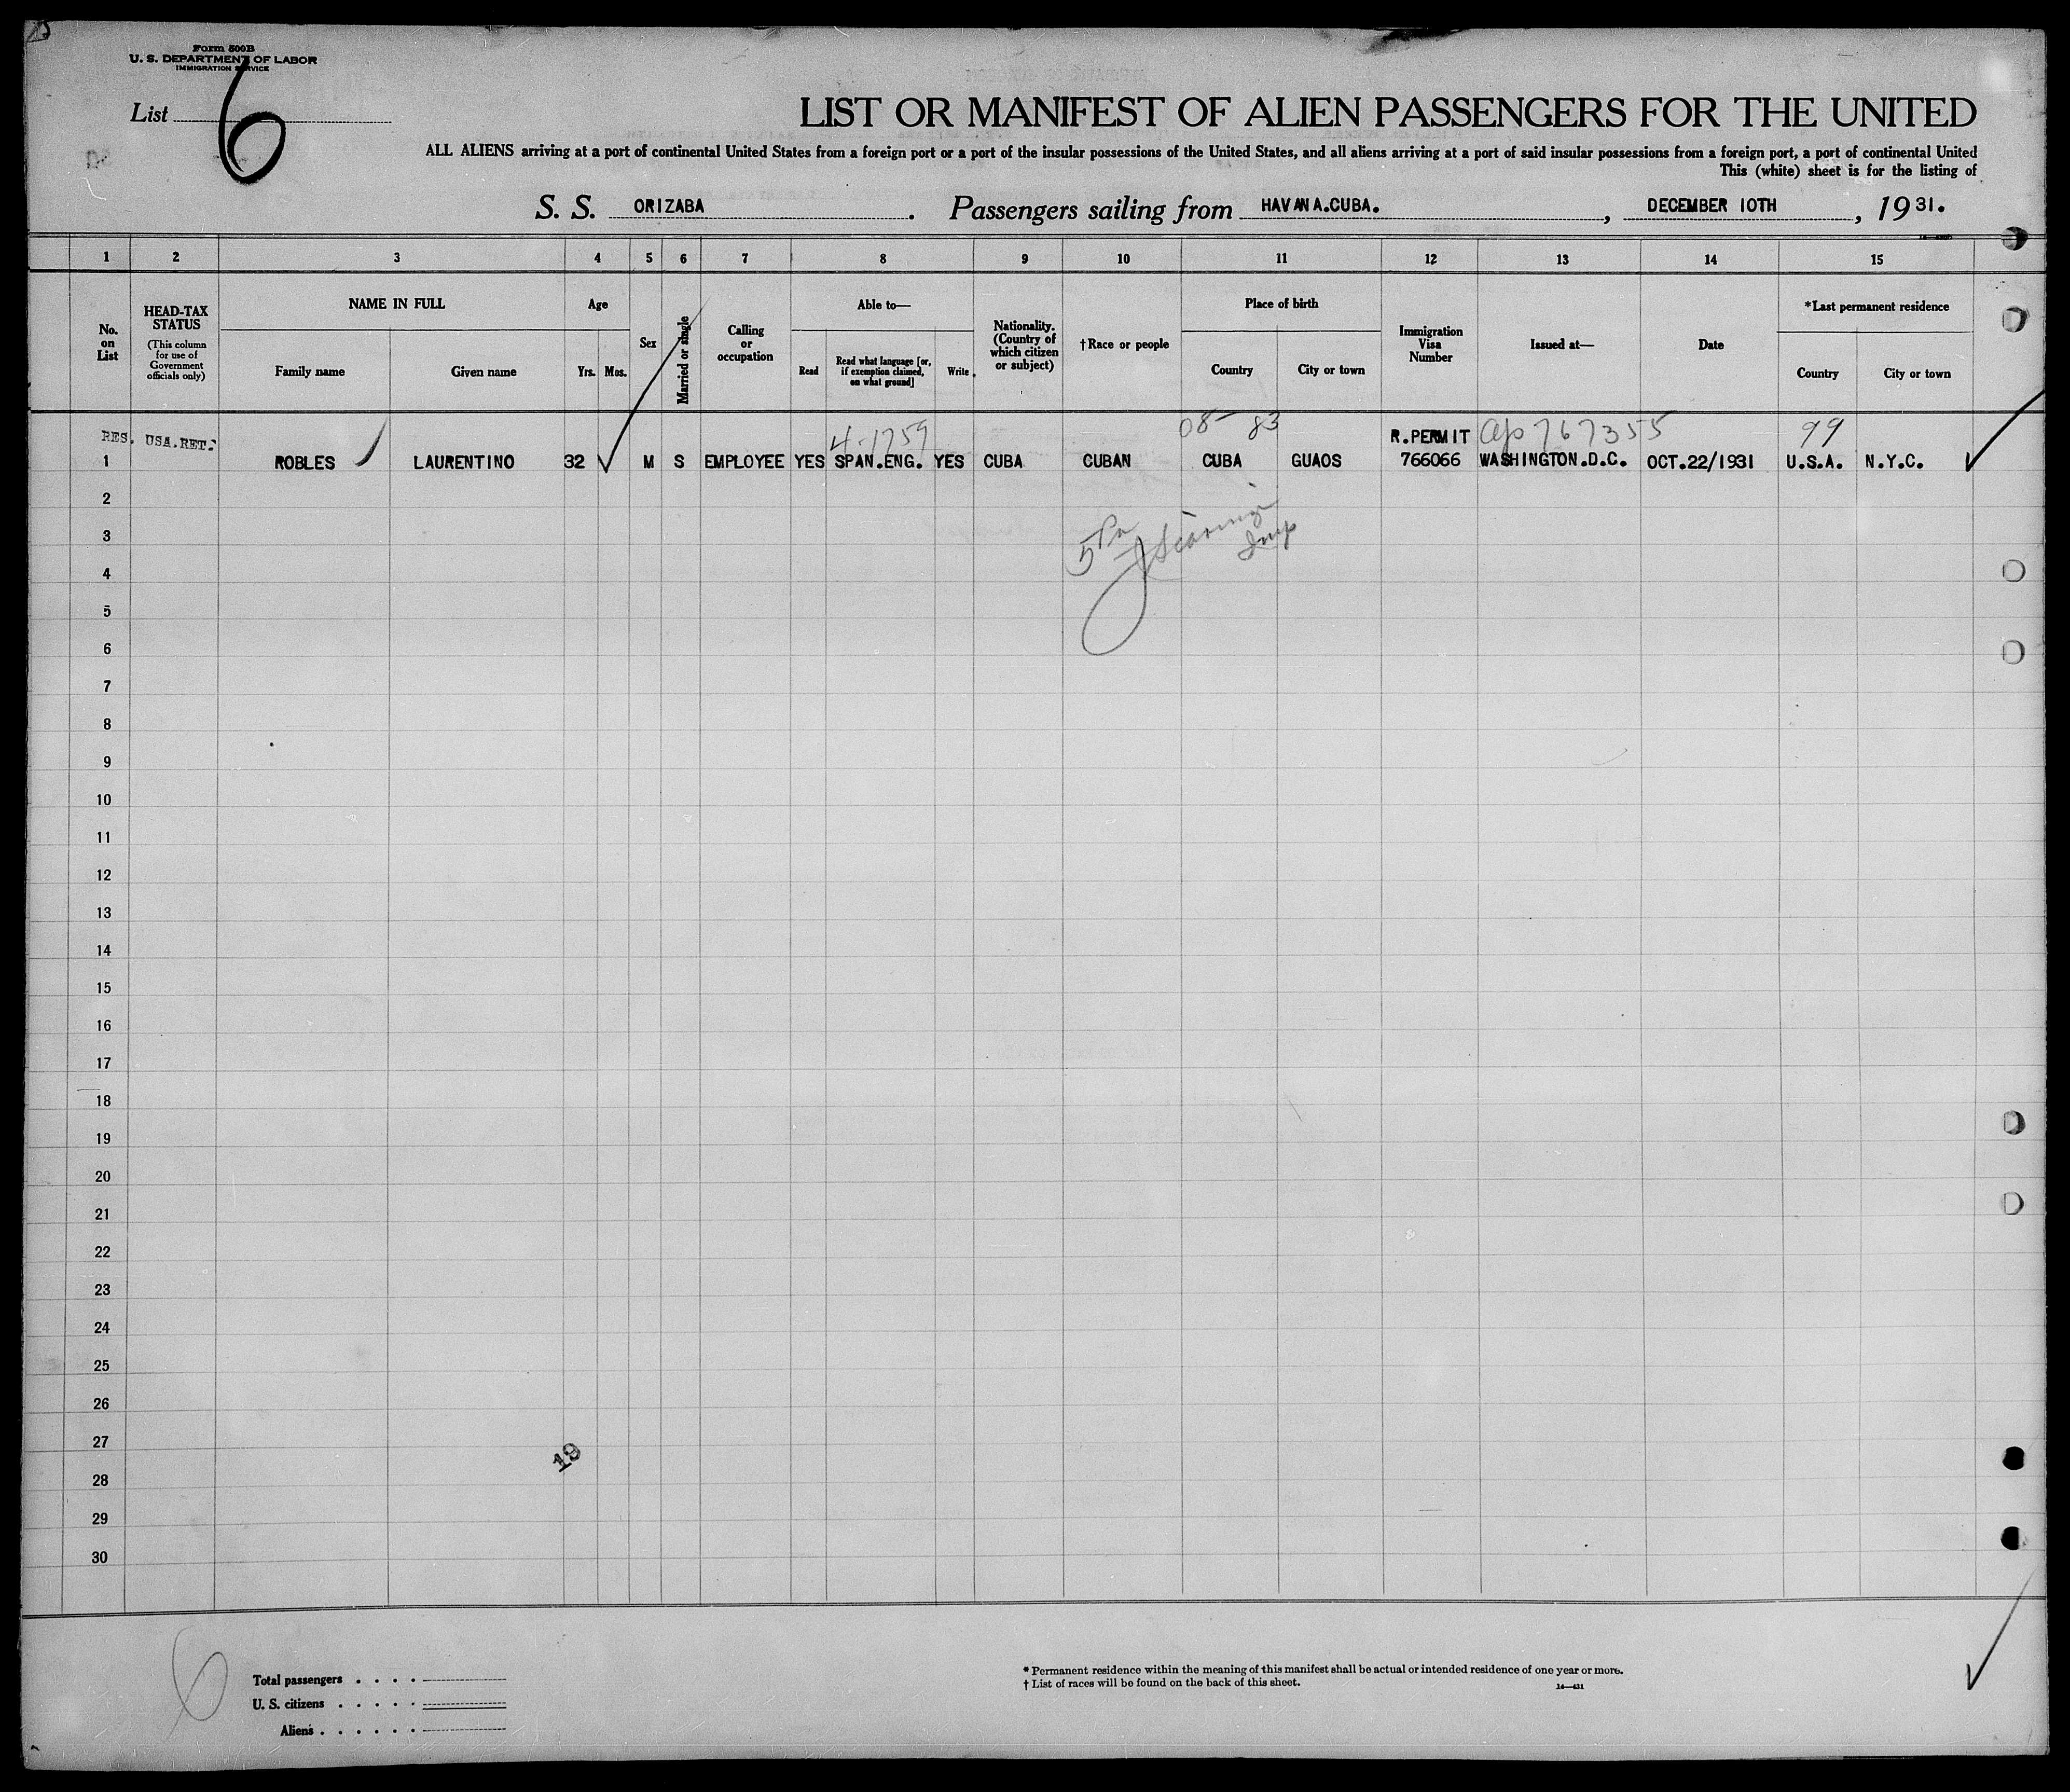 Form 500B
U. S. DEPARTMENT OF LABOR
IMMIGRATION SERVICE
List 6
LIST OR MANIFEST OF ALIEN PASSENGERS FOR THE UNITED
ALL ALIENS arriving at a port of continental United States from a foreign port or a port of the insular possessions of the United States, and all aliens arriving at a port of said insular possessions from a foreign port, a port of continental United
This (white) sheet is for the listing of
S. S. ORIZABA. Passengers sailing from HAVANA.CUBA., DECEMBER 10TH, 1931.
1 2 3 4 5 6 7 8 9 10 11 12 13 14 15
No. on List
HEAD-TAX STATUS
(This column for use of Government officials only)
NAME IN FULL
Family name
Given name
Age
Yrs. Mos.
Sex
Married or single
Calling or occupation
Able to—
Read
Read what language [or, if exemption claimed, on what ground]
Write
Nationality. (Country of which citizen or subject)
†Race or people
Place of birth
Country
City or town
Immigration Visa Number
Issued at—
Date
*Last permanent residence
Country
City or town
RES. USA.RET. 4-1759 08- 83 R.PERMIT 767355 99
1 ROBLES LAURENTINO 32 M S EMPLOYEE YES SPAN.ENG. YES CUBA CUBAN CUBA GUAOS 766066 WASHINGTON.D.C. OCT.22/1931 U.S.A. N.Y.C.
2
3
4
5
6
7
8
9
10
11
12
13
14
15
16
17
18
19
20
21
22
23
24
25
26
27
19
28
29
30
6
Total passengers . . . .
U. S. citizens . . . . .
Aliens . . . . . .
* Permanent residence within the meaning of this manifest shall be actual or intended residence of one year or more.
† List of races will be found on the back of this sheet.
14—431